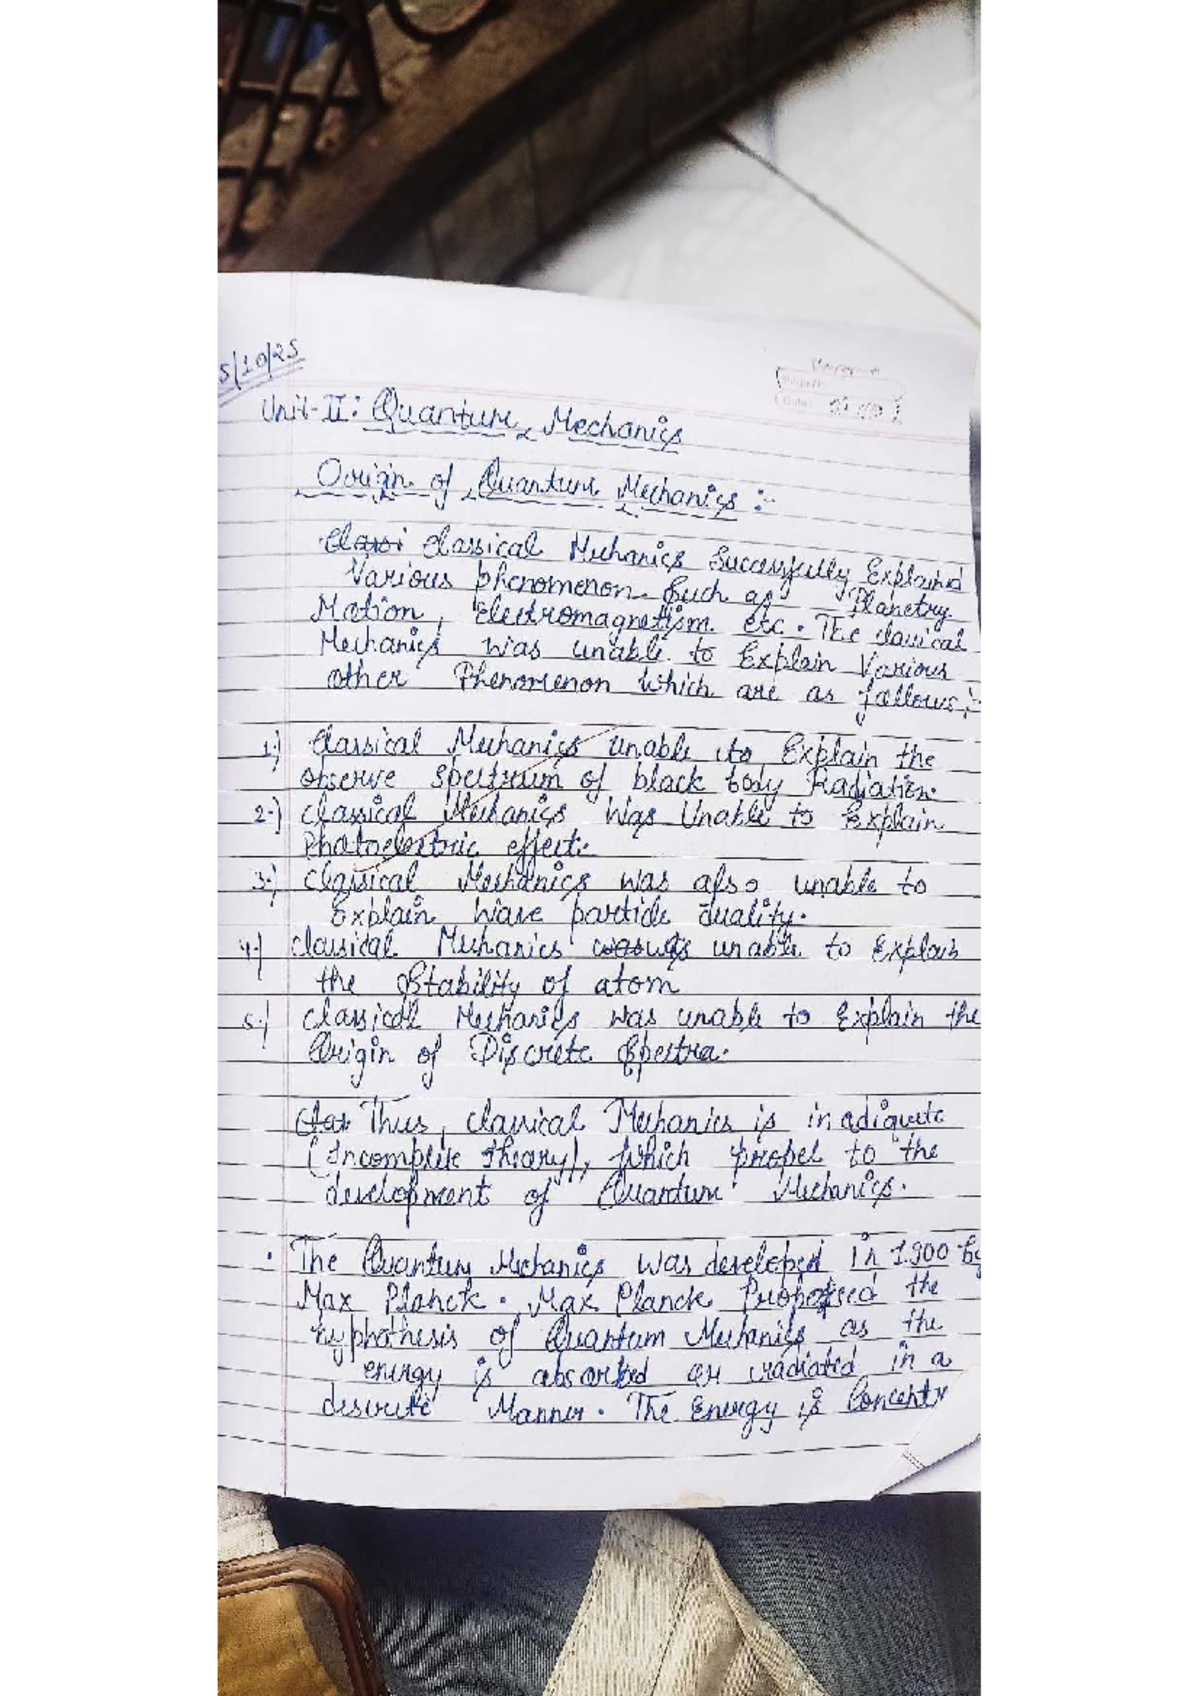 5/10/25
Unit-II: Quantum Mechanics
Origin of Quantum Mechanics :-
Classi Classical Mechanics Successfully Explained
Various phenomenon Such as Planetry
Motion, Electromagnetism etc. The classical
Mechanics was unable to Explain Various
other Phenomenon which are as follows:-
1.) Classical Mechanics unable to Explain the
observe spectrum of black body Radiation.
2.) Classical Mechanics Was Unable to Explain
Photoelectric effect.
3.) Classical Mechanics was also unable to
Explain Wave particle duality.
4.) Classical Mechanics was unable to Explain
the Stability of atom
5.) Classical Mechanics was unable to Explain the
Origin of Discrete Spectra.
Clas Thus, classical Mechanics is inadiquate
(Incomplete theary), which propel to the
development of Quantum Mechanics.
• The Quantum Mechanics was developed in 1900 by
Max Planck. Max Planck Proposed the
hyphothesis of Quantum Mechanics as the
energy is absorbed or radiated in a
discrete Manner. The Energy is Concentr